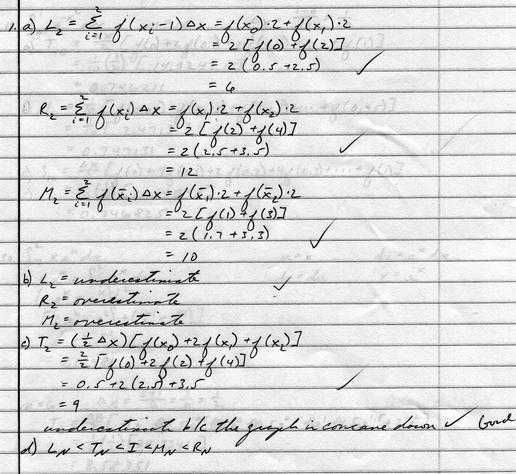 1. a) L₂ = Σ²ᵢ₌₁ f(xᵢ-1)Δx = f(x₀)·2 + f(x₁)·2
= 2[f(0) + f(2)]
= 2(0.5 + 2.5)
= 6
R₂ = Σ²ᵢ₌₁ f(xᵢ)Δx = f(x₁)·2 + f(x₂)·2
= 2[f(2) + f(4)]
= 2(2.5 + 3.5)
= 12
M₂ = Σ²ᵢ₌₁ f(x̄ᵢ)Δx = f(x̄₁)·2 + f(x̄₂)·2
= 2[f(1) + f(3)]
= 2(1.7 + 3.3)
= 10
b) L₂ = underestimate
R₂ = overestimate
M₂ = overestimate
c) T₂ = (½ Δx)[f(x₀) + 2f(x₁) + f(x₂)]
= 2/2 [f(0) + 2f(2) + f(4)]
= 0.5 + 2(2.5) + 3.5
= 9
underestimate b/c the graph is concave down ✓ Good
d) L_N < T_N < I < M_N < R_N